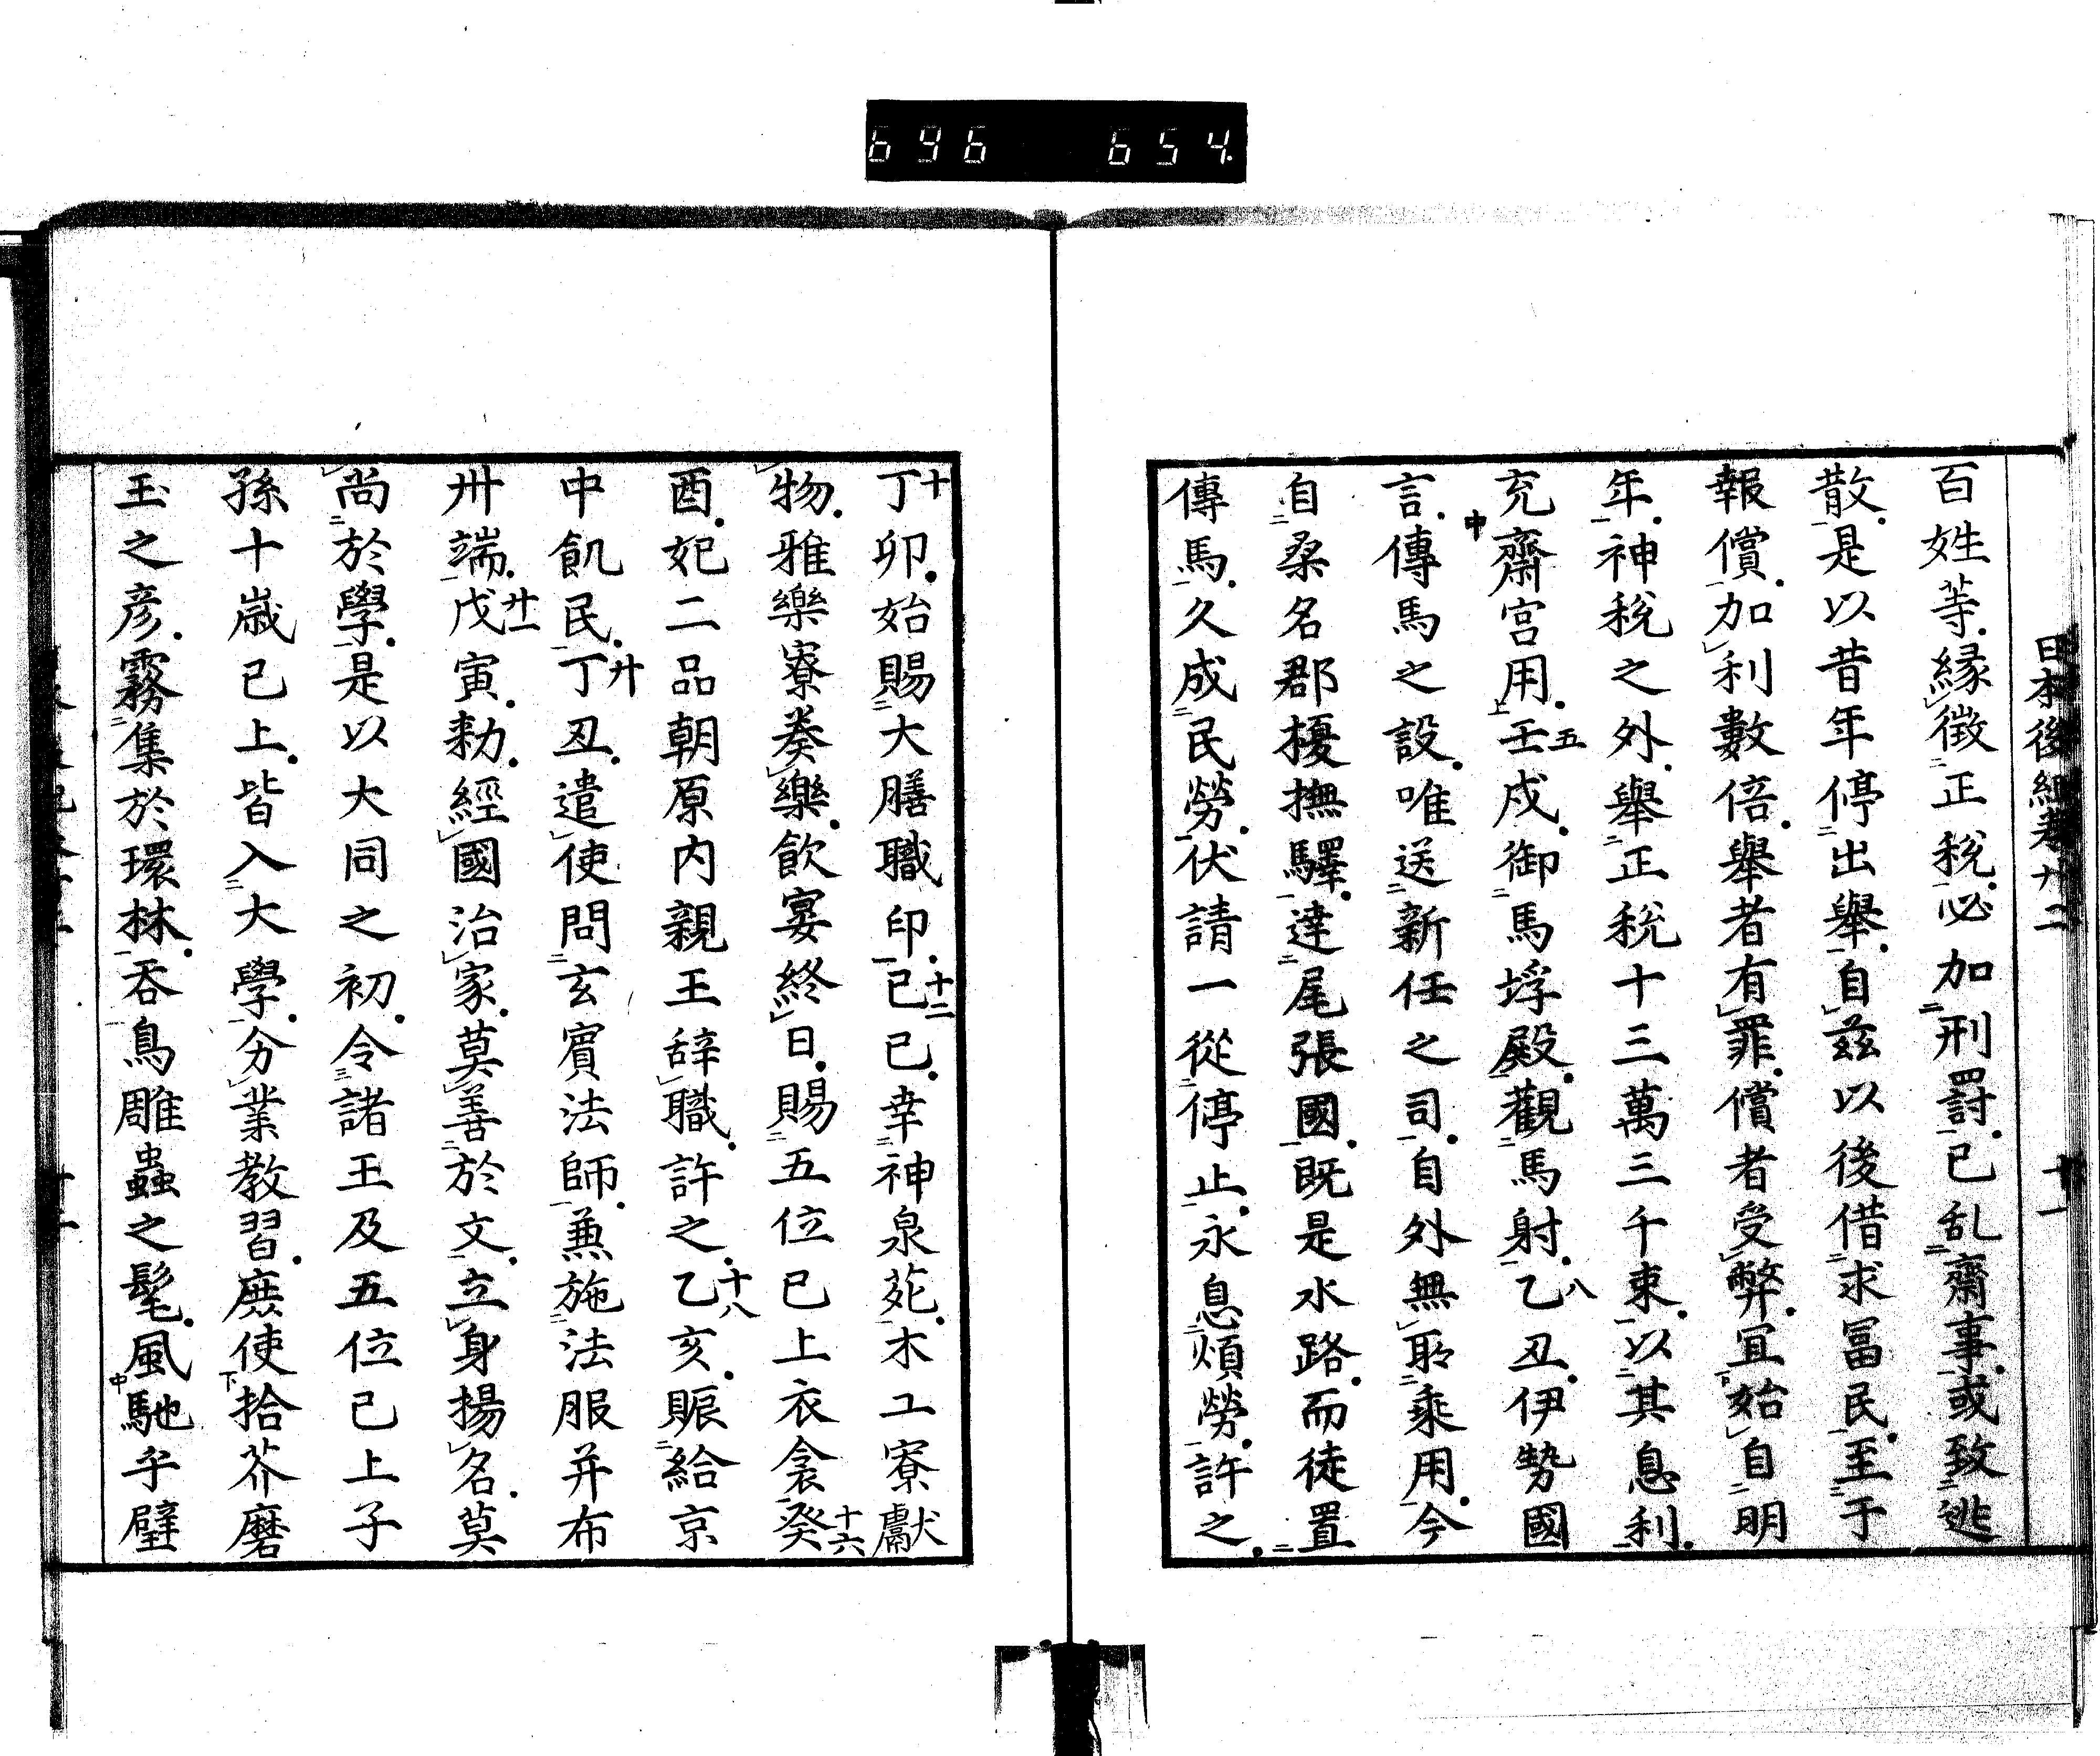 696 654.
日本後紀卷廿二 十一
百姓等緣徵正稅必加刑罸已乱齋事或致逃
散是以昔年停出舉自茲以後借求冨民至于
報償加利數倍舉者有罪償者受弊冝始自明
年神稅之外舉正稅十三萬三千束以其息利
充齋宮用壬戍御馬埓殿觀馬射乙丑伊勢國
言傳馬之設唯送新任之司自外無䎹乘用今
自桒名郡榎撫驛達尾張國既是水路而徒置
傳馬久成民勞伏請一從停止永息煩勞許之
丁卯始賜大膳職印己巳幸神泉苑木工寮獻
物雅樂寮奏樂飮宴終日賜五位已上衣衾癸
酉妃二品朝原內親王辞職許之乙亥賑給京
中飢民丁丑遣使問玄賓法師兼施法服并布
卅端戊寅勑經國治家莫善於文立身揚名莫
尚於學是以大同之初令諸王及五位已上子
孫十歲已上皆入大學分業教習庶使拾芥磨
玉之彦霧集於環林吞鳥雕蟲之髦風馳乎壁